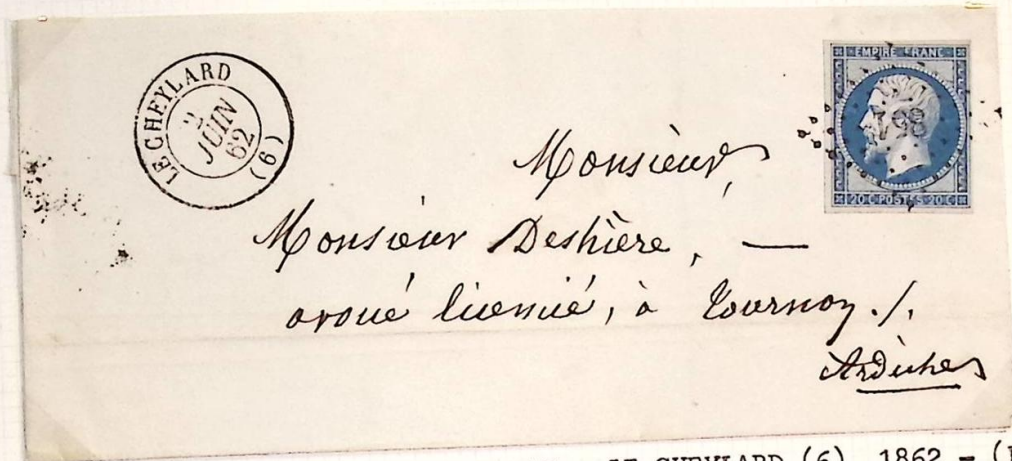 LE CHEYLARD
2
JUIN
62
(6)
EMPIRE FRANC
20 C POSTES 20 C
Monsieur,
Monsieur Deshière, —
avoué licencié, à Tournon ./.
Ardèche
LE CHEYLARD (6) 1862 - (